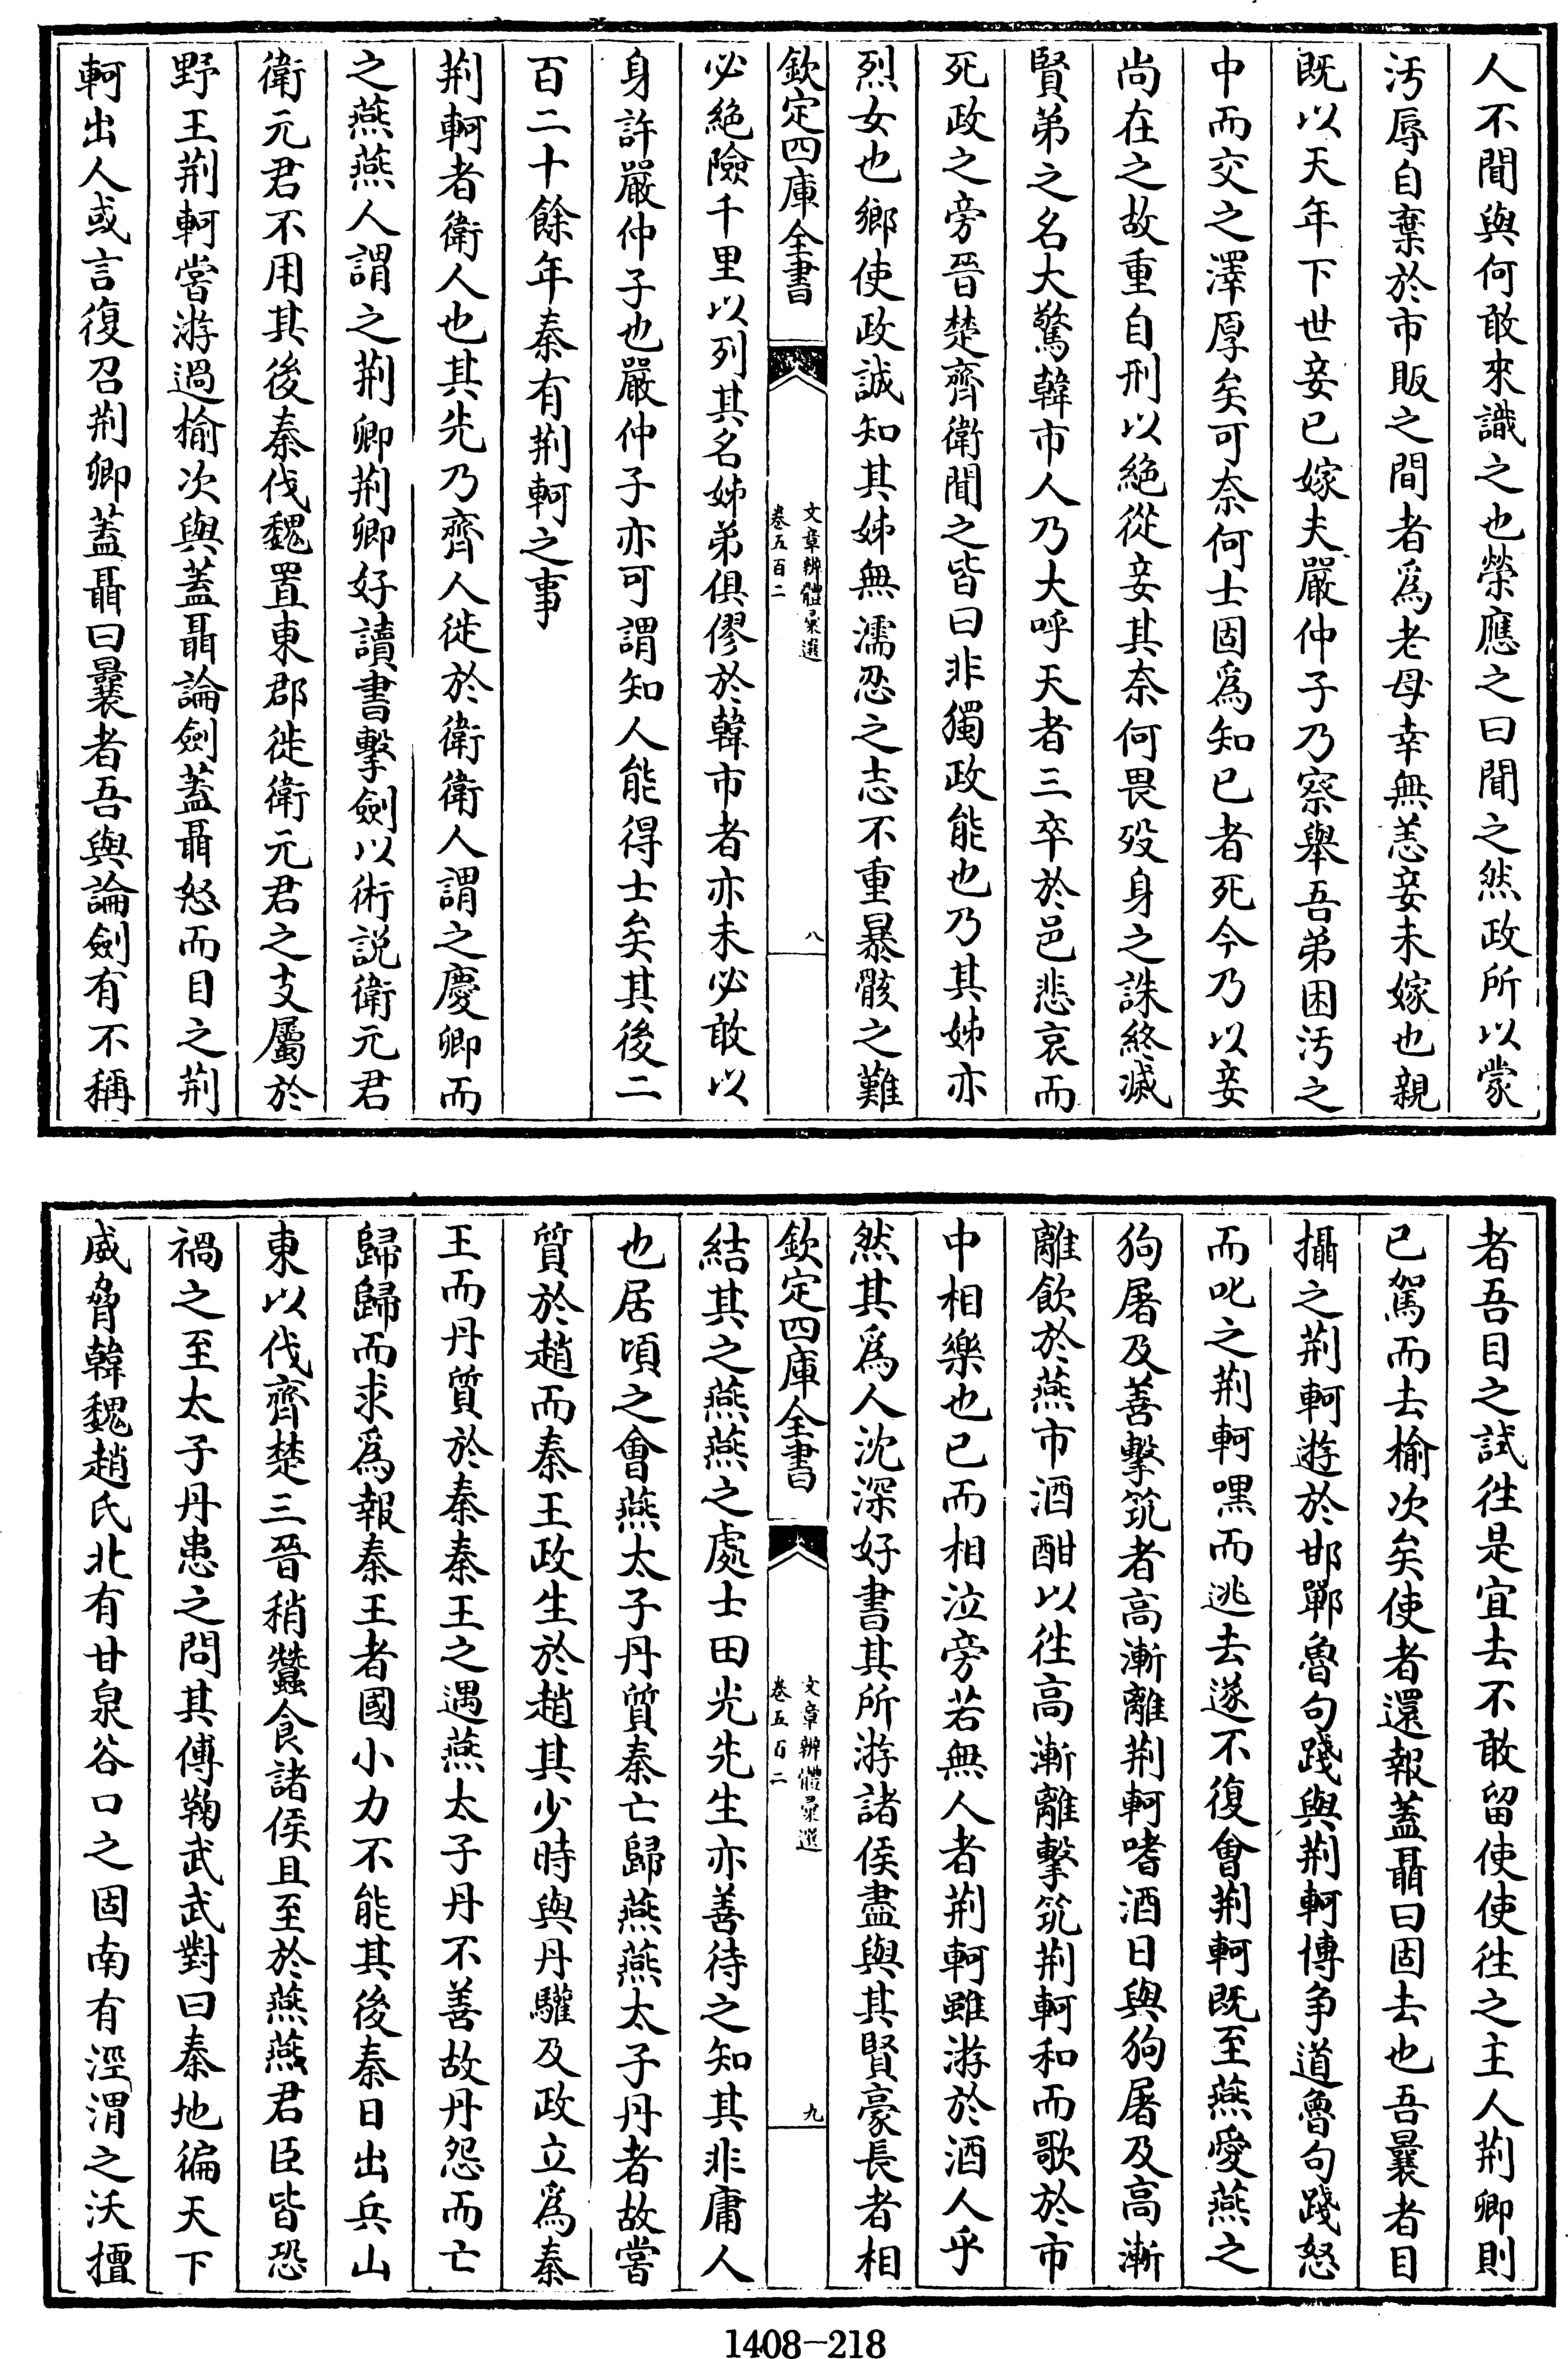 人不聞與何敢來識之也榮應之曰聞之然政所以蒙
汚辱自棄於市販之間者爲老母幸無恙妾未嫁也親
既以天年下世妾已嫁夫嚴仲子乃察舉吾弟困汚之
中而交之澤厚矣可奈何士固爲知已者死今乃以妾
尚在之故重自刑以絶從妾其奈何畏歿身之誅終滅
賢弟之名大驚韓市人乃大呼天者三卒於邑悲哀而
死政之旁晉楚齊衛聞之皆曰非獨政能也乃其姊亦
烈女也鄉使政誠知其姊無濡忍之志不重暴骸之難
欽定四庫全書
文章辨體彙選
卷五百二
八
必絶險千里以列其名姊弟俱僇於韓市者亦未必敢以
身許嚴仲子也嚴仲子亦可謂知人能得士矣其後二
百二十餘年秦有荆軻之事
荆軻者衛人也其先乃齊人徙於衛衛人謂之慶卿而
之燕燕人謂之荆卿荆卿好讀書擊劍以術説衛元君
衛元君不用其後秦伐魏置東郡徙衛元君之支屬於
野王荆軻嘗游過榆次與蓋聶論劍蓋聶怒而目之荆
軻出人或言復召荆卿蓋聶曰曩者吾與論劍有不稱
者吾目之試往是宜去不敢留使使往之主人荆卿則
已駕而去榆次矣使者還報蓋聶曰固去也吾曩者目
攝之荆軻遊於邯鄲魯句踐與荆軻博争道魯句踐怒
而叱之荆軻嘿而逃去遂不復會荆軻既至燕愛燕之
狗屠及善擊筑者高漸離荆軻嗜酒日與狗屠及高漸
離飲於燕市酒酣以往高漸離擊筑荆軻和而歌於市
中相樂也已而相泣旁若無人者荆軻雖游於酒人乎
然其爲人沈深好書其所游諸侯盡與其賢豪長者相
欽定四庫全書
文章辨體彙選
卷五百二
九
結其之燕燕之處士田光先生亦善待之知其非庸人
也居頃之會燕太子丹質秦亡歸燕燕太子丹者故嘗
質於趙而秦王政生於趙其少時與丹驩及政立爲秦
王而丹質於秦秦王之遇燕太子丹不善故丹怨而亡
歸歸而求爲報秦王者國小力不能其後秦日出兵山
東以伐齊楚三晉稍蠶食諸侯且至於燕燕君臣皆恐
禍之至太子丹患之問其傅鞠武武對曰秦地徧天下
威脅韓魏趙氏北有甘泉谷口之固南有涇渭之沃擅
1408-218